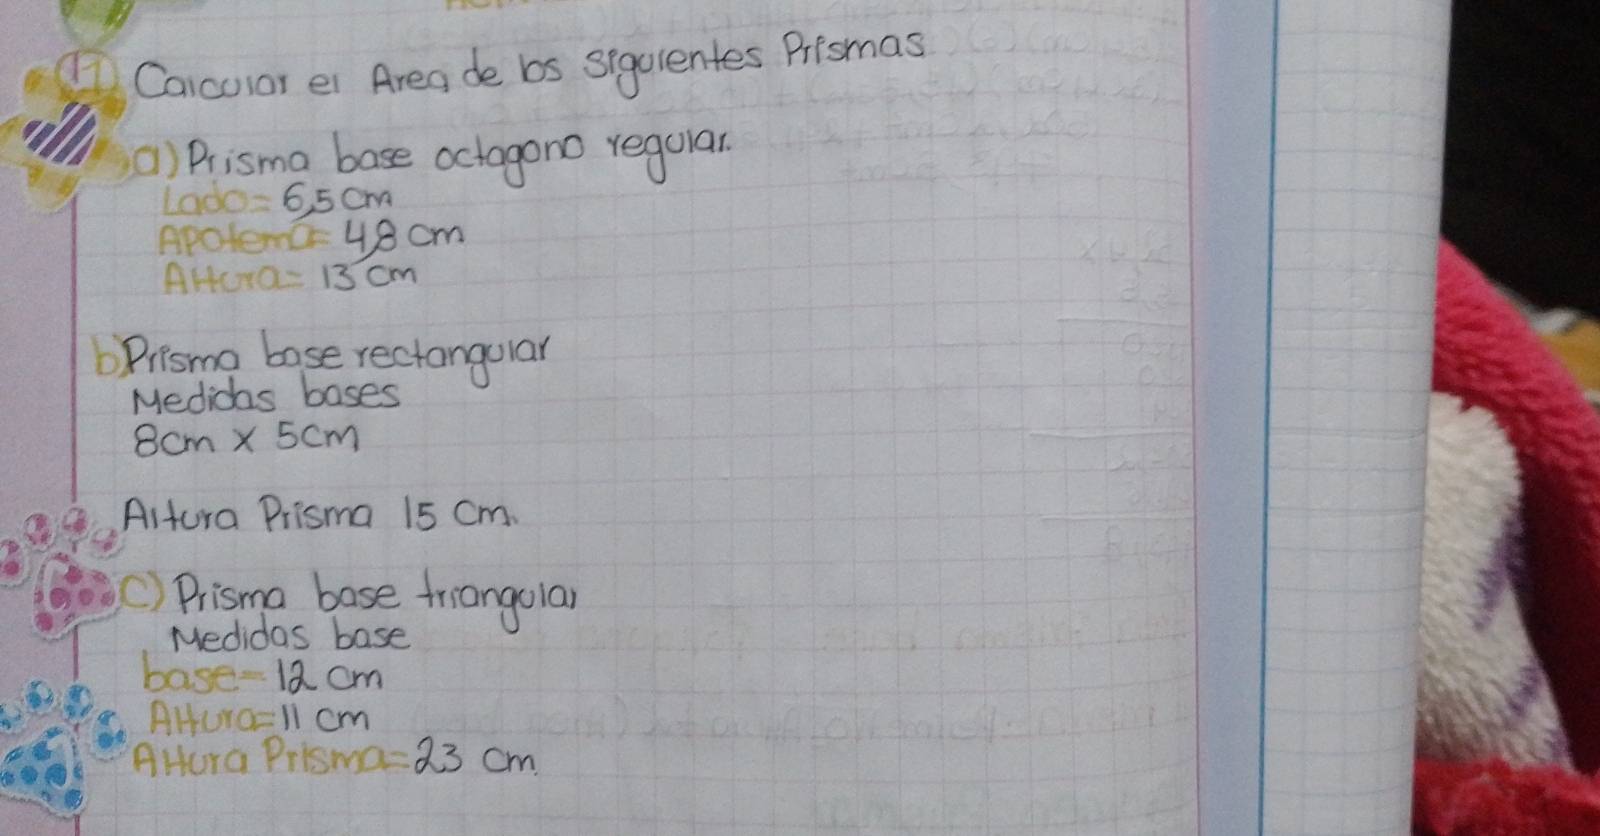 1) Calcular el Area de los siguientes Prismas
a) Prisma base octagono regular.
Lado= 6,5 cm
Apotema= 4,8 cm
Altura= 13 cm
b) Prisma base rectangular
Medidas bases
8cm x 5cm
Altura Prisma 15 cm.
c) Prisma base triangular
Medidas base
base= 12 cm
Altura= 11 cm
Altura Prisma= 23 cm.